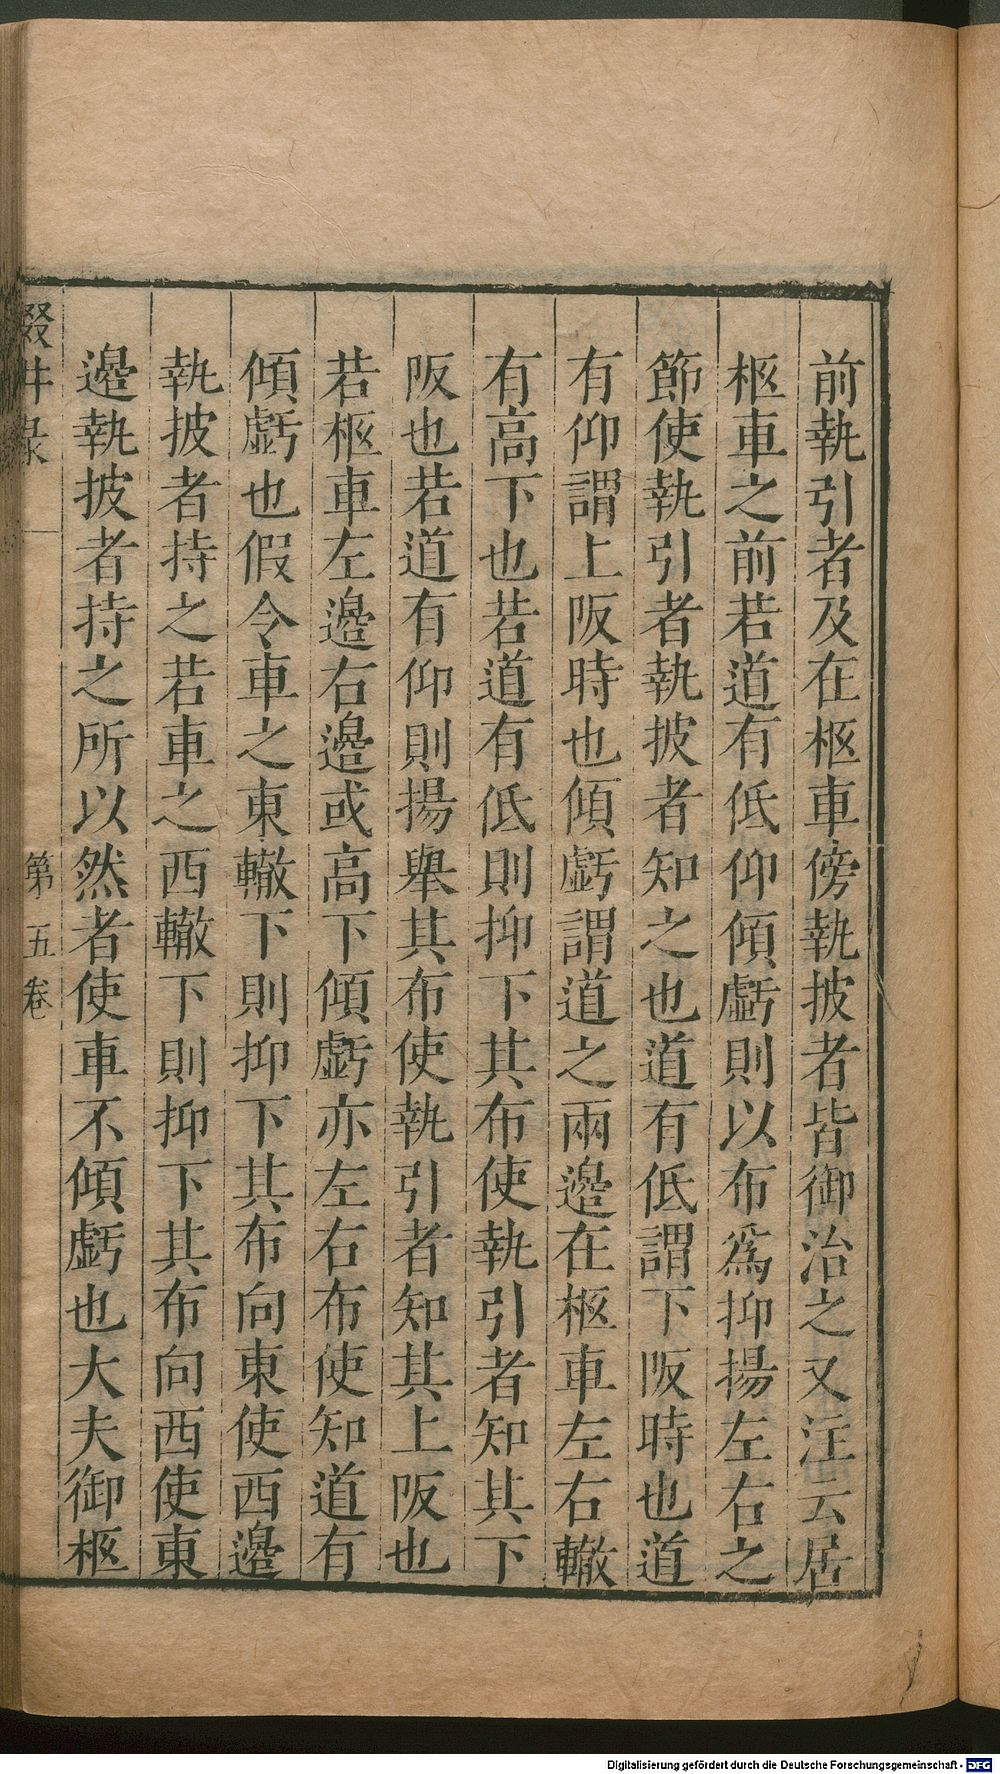 前執引者及在柩車傍執披者皆御治之又注云居
柩車之前若道有低仰傾虧則以布爲抑揚左右之
節使執引者執披者知之也道有低謂下阪時也道
有仰謂上阪時也傾虧謂道之兩邊在柩車左右轍
有高下也若道有低則抑下其布使執引者知其下
阪也若道有仰則揚舉其布使執引者知其上阪也
若柩車左邊右邊或高下傾虧亦左右布使知道有
傾虧也假令車之東轍下則抑下其布向東使西邊
執披者持之若車之西轍下則抑下其布向西使東
邊執披者持之所以然者使車不傾虧也大夫御柩
輟畊录 第五卷
Digitalisierung gefördert durch die Deutsche Forschungsgemeinschaft - DFG